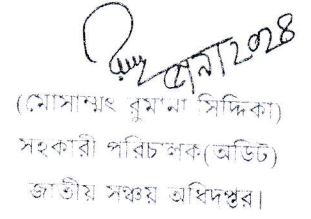 ২০২৪
(মোসাম্মৎ রুমানা সিদ্দিকা)
সহকারী পরিচালক(অডিট)
জাতীয় সঞ্চয় অধিদপ্তর।